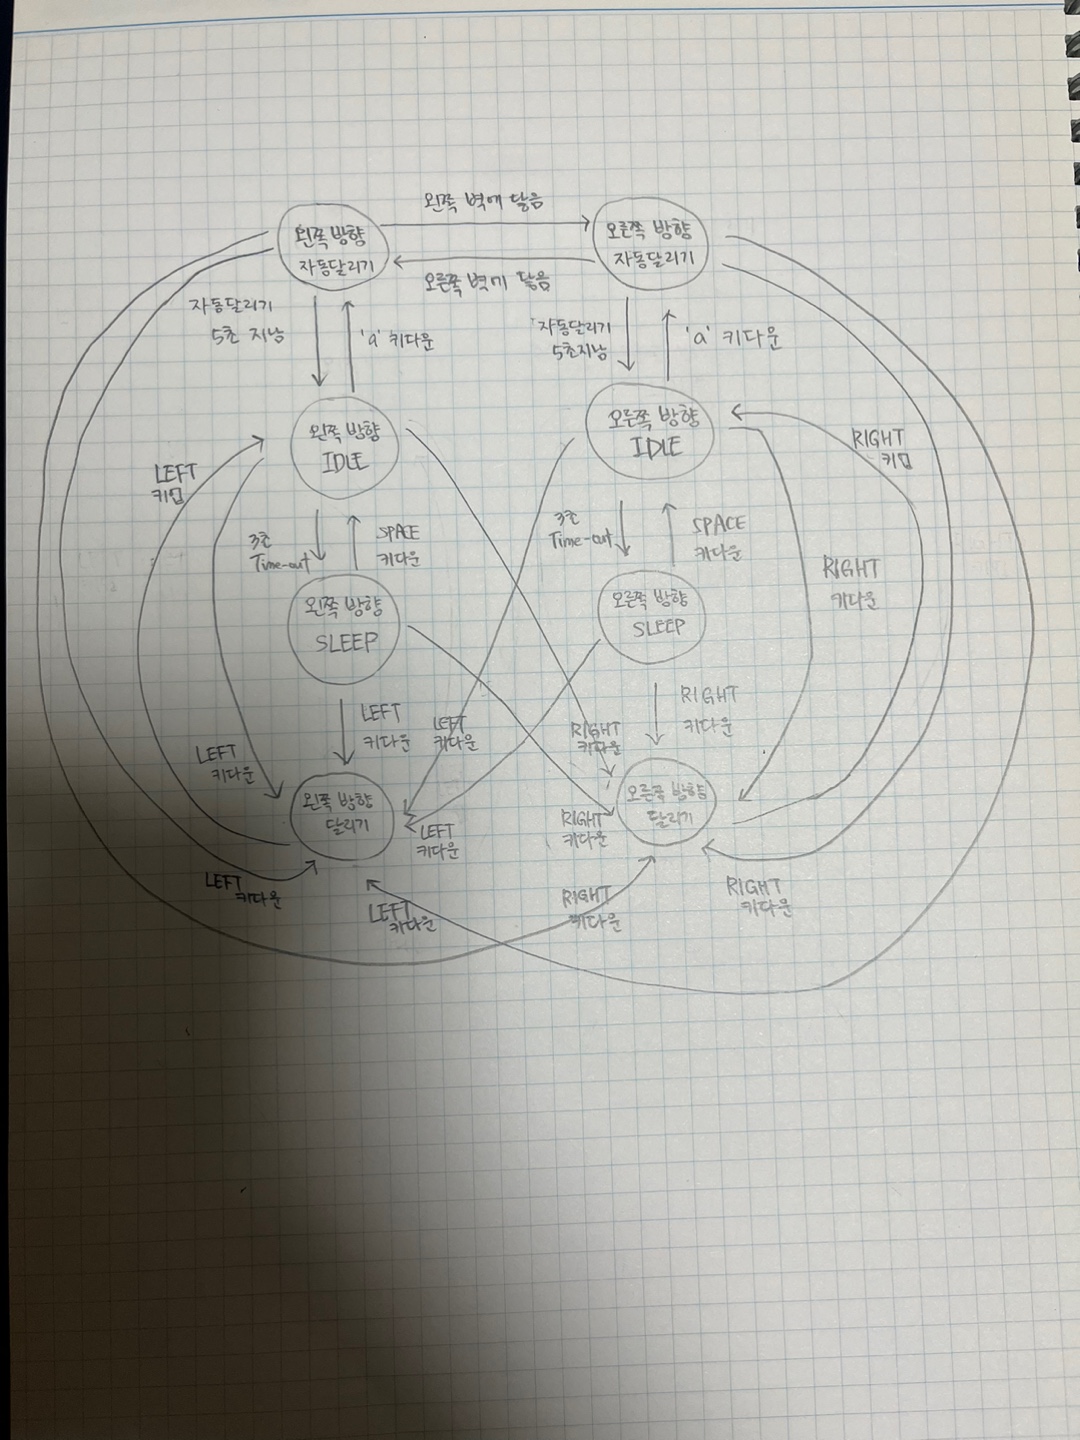 왼쪽 벽에 닿음
왼쪽 방향
자동달리기
오른쪽 방향
자동달리기
오른쪽 벽에 닿음
자동달리기
5초 지남
'a' 키다운
자동달리기
5초지남
'a' 키다운
왼쪽 방향
IDLE
오른쪽 방향
IDLE
LEFT
키업
RIGHT
키업
3초
Time-out
SPACE
키다운
3초
Time-out
SPACE
키다운
RIGHT
키다운
왼쪽 방향
SLEEP
오른쪽 방향
SLEEP
LEFT
키다운
LEFT
키다운
RIGHT
키다운
RIGHT
키다운
LEFT
키다운
왼쪽 방향
달리기
오른쪽 방향
달리기
LEFT
키다운
RIGHT
키다운
LEFT
키다운
LEFT
키다운
RIGHT
키다운
RIGHT
키다운